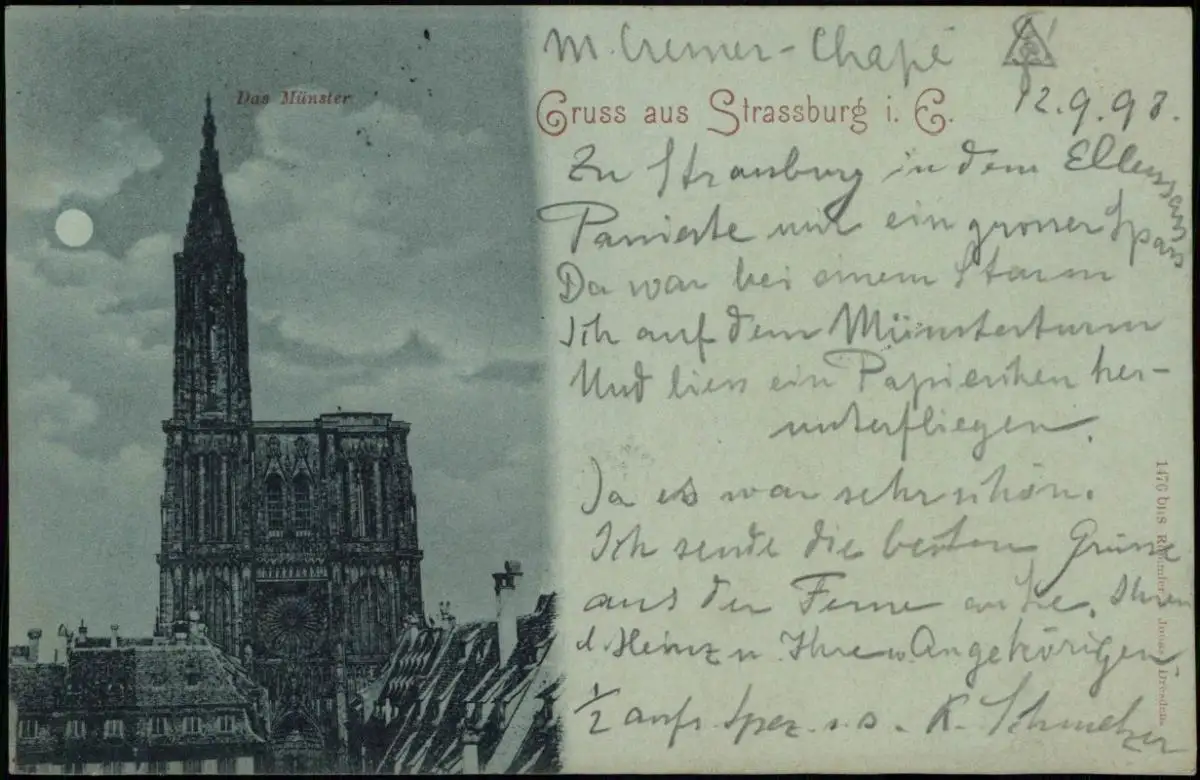 Das Münster
M. Cremer-Chapé
Gruss aus Strassburg i. E.
12.9.98.
Zu Strassburg in dem Ellsass
Passierte mir ein grosser Spass
Da war bei einem Sturm
Ich auf dem Münsterturm
Und liess ein Papierchen her-
unterfliegen.
Ja es war sehr schön.
Ich sende die besten Grüsse
aus der Ferne Ihnen
d. Heinz u. Ihren Angehörigen
1/2 aufs Spez. s.s. K. Schmelzer
1476 bis Römmler & Jonas, Dresden.